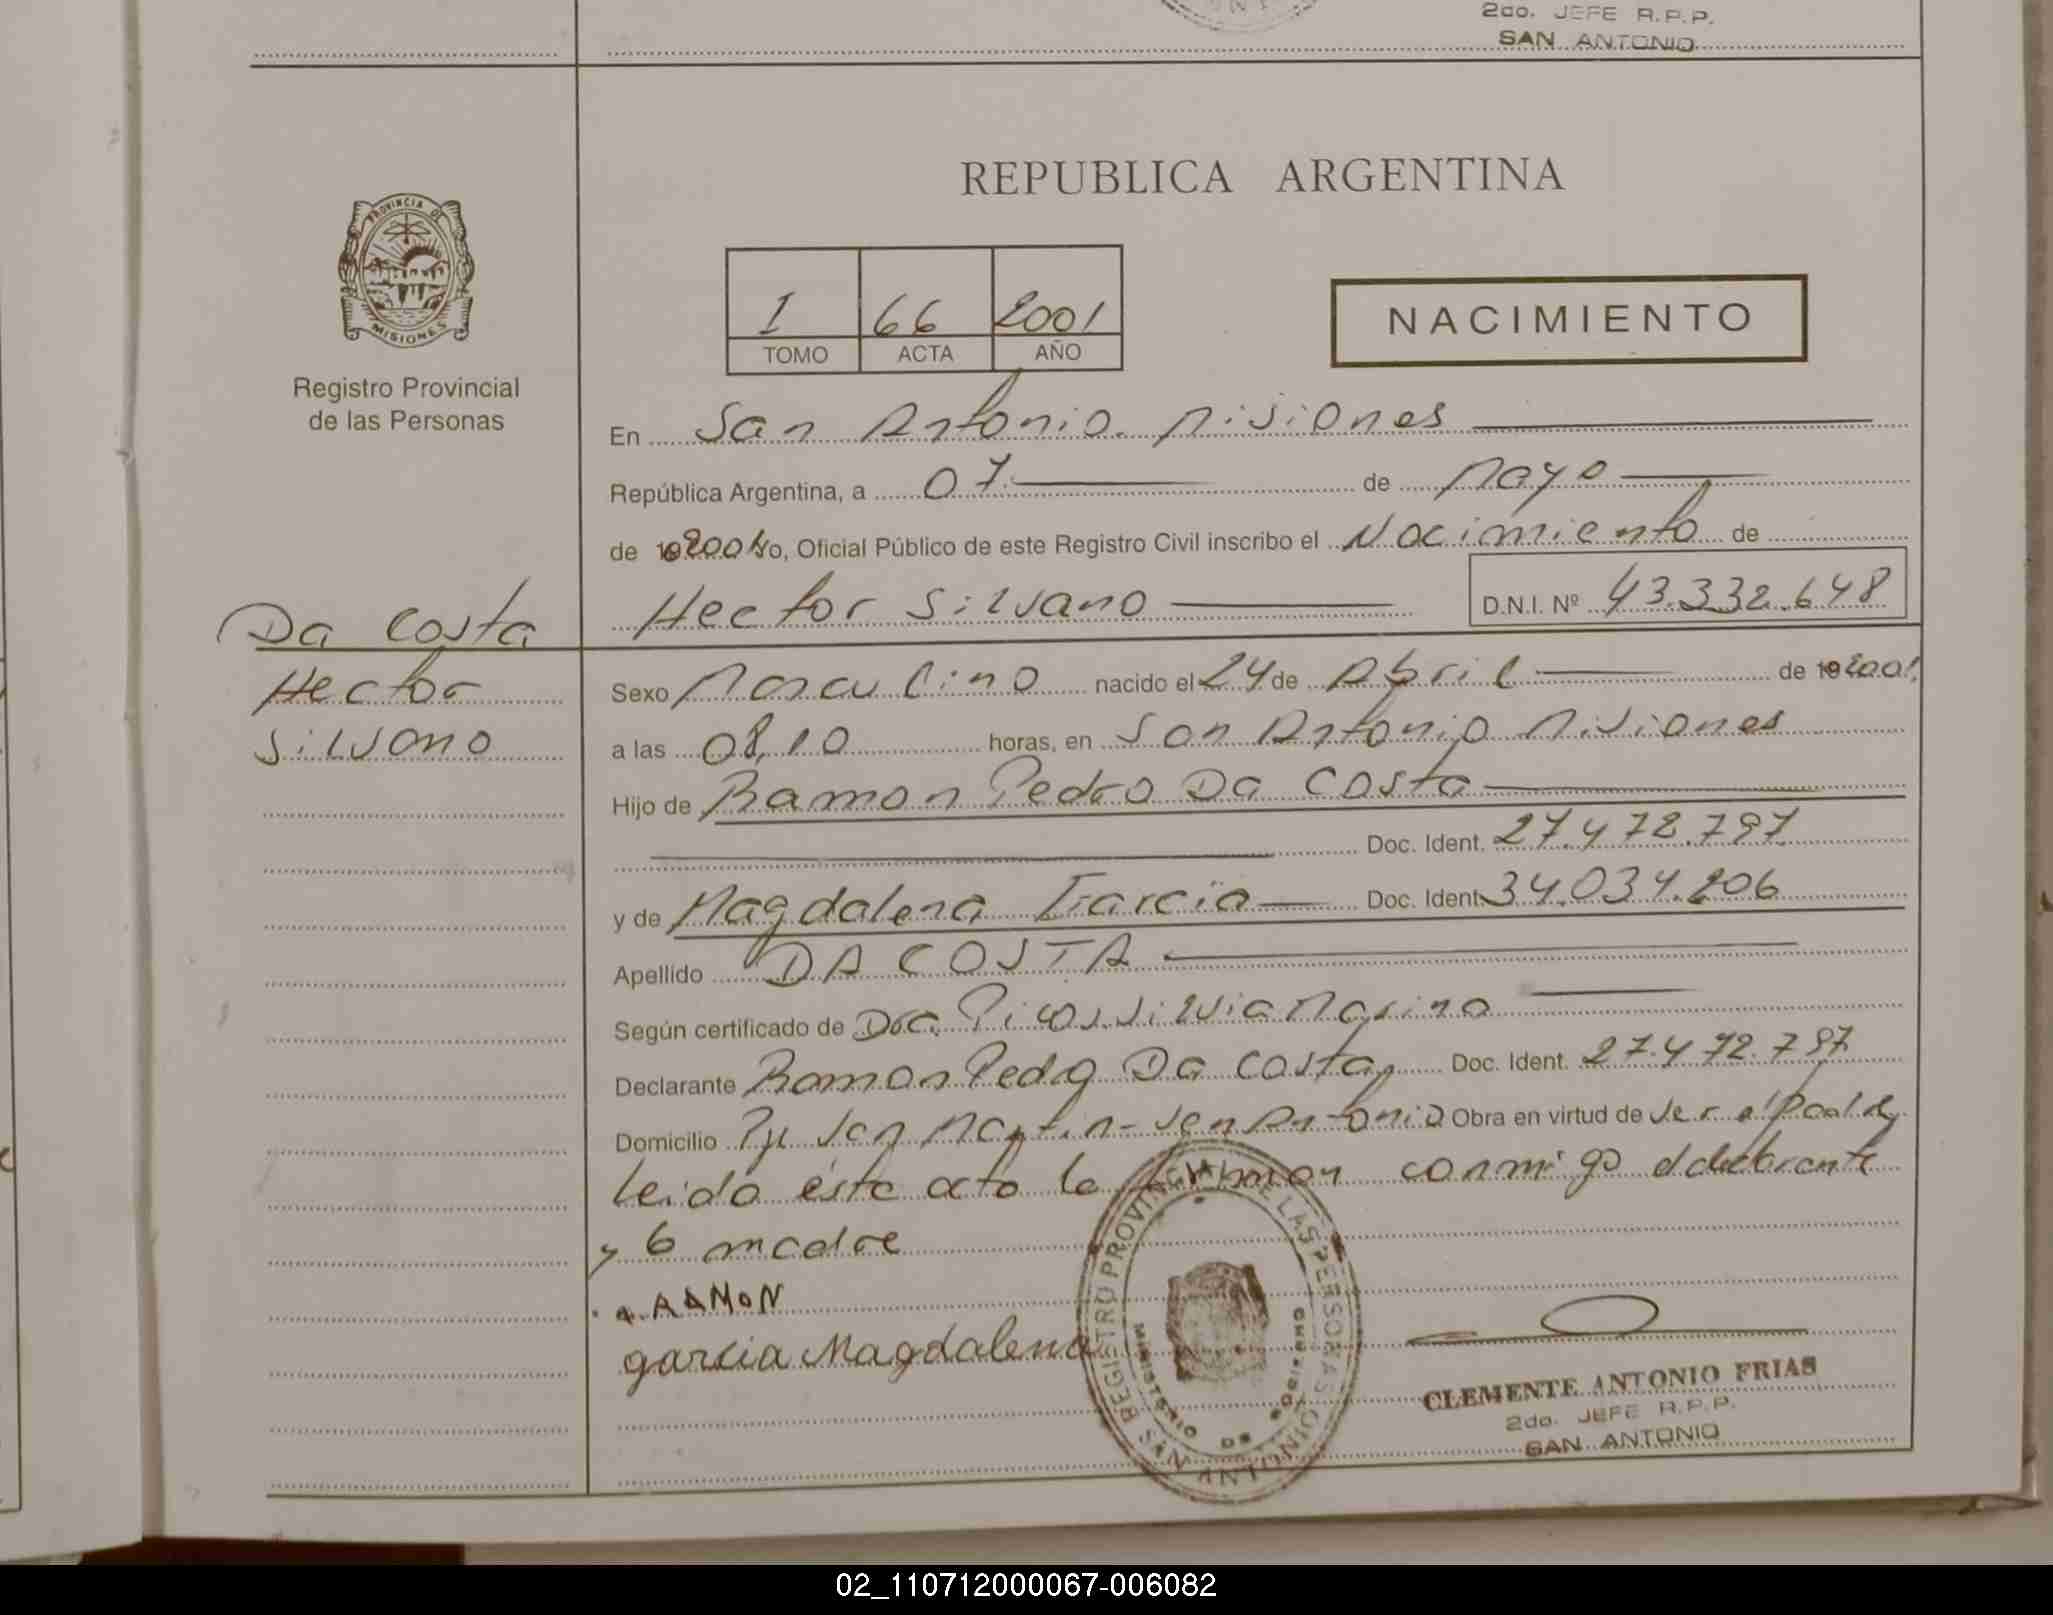 2do. JEFE R.P.P.
SAN ANTONIO
PROVINCIA DE
MISIONES
Registro Provincial
de las Personas
REPUBLICA ARGENTINA
I 66 2001
TOMO ACTA AÑO
NACIMIENTO
En San Antonio Misiones
República Argentina, a 07 de Mayo
de 2001 Yo, Oficial Público de este Registro Civil inscribo el Nacimiento de
Hector Silvano D.N.I. Nº 43.332.648
Da Costa
Hector
Silvano
Sexo Masculino nacido el 24 de Abril de 192001,
a las 08,10 horas, en San Antonio Misiones
Hijo de Ramon Pedro Da Costa
Doc. Ident. 27.472.797
y de Magdalena Garcia Doc. Ident. 34.034.206
Apellido DA COSTA
Según certificado de Dra. Picos Silvia Marina
Declarante Ramon Pedro Da Costa Doc. Ident. 27.472.797
Domicilio San Martin - San Antonio Obra en virtud de ser el Padre
leida ésta acta la firman conmigo el declarante
y la madre
RAMON
garcia Magdalena
REGISTRO PROVINCIAL DE LAS PERSONAS
MINISTERIO DE GOBIERNO
SAN ANTONIO
CLEMENTE ANTONIO FRIAS
2do. JEFE R.P.P.
SAN ANTONIO
02_110712000067-006082